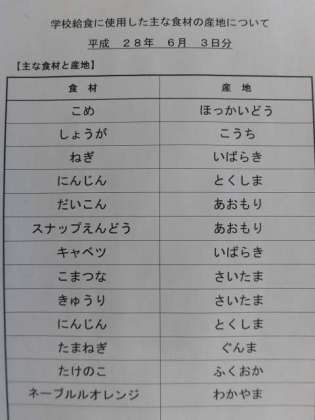 学校給食に使用した主な食材の産地について
平成 28年 6月 3日分
【主な食材と産地】
食 材 産 地
こめ ほっかいどう
しょうが こうち
ねぎ いばらき
にんじん とくしま
だいこん あおもり
スナップえんどう あおもり
キャベツ いばらき
こまつな さいたま
きゅうり さいたま
にんじん とくしま
たまねぎ ぐんま
たけのこ ふくおか
ネーブルルオレンジ わかやま